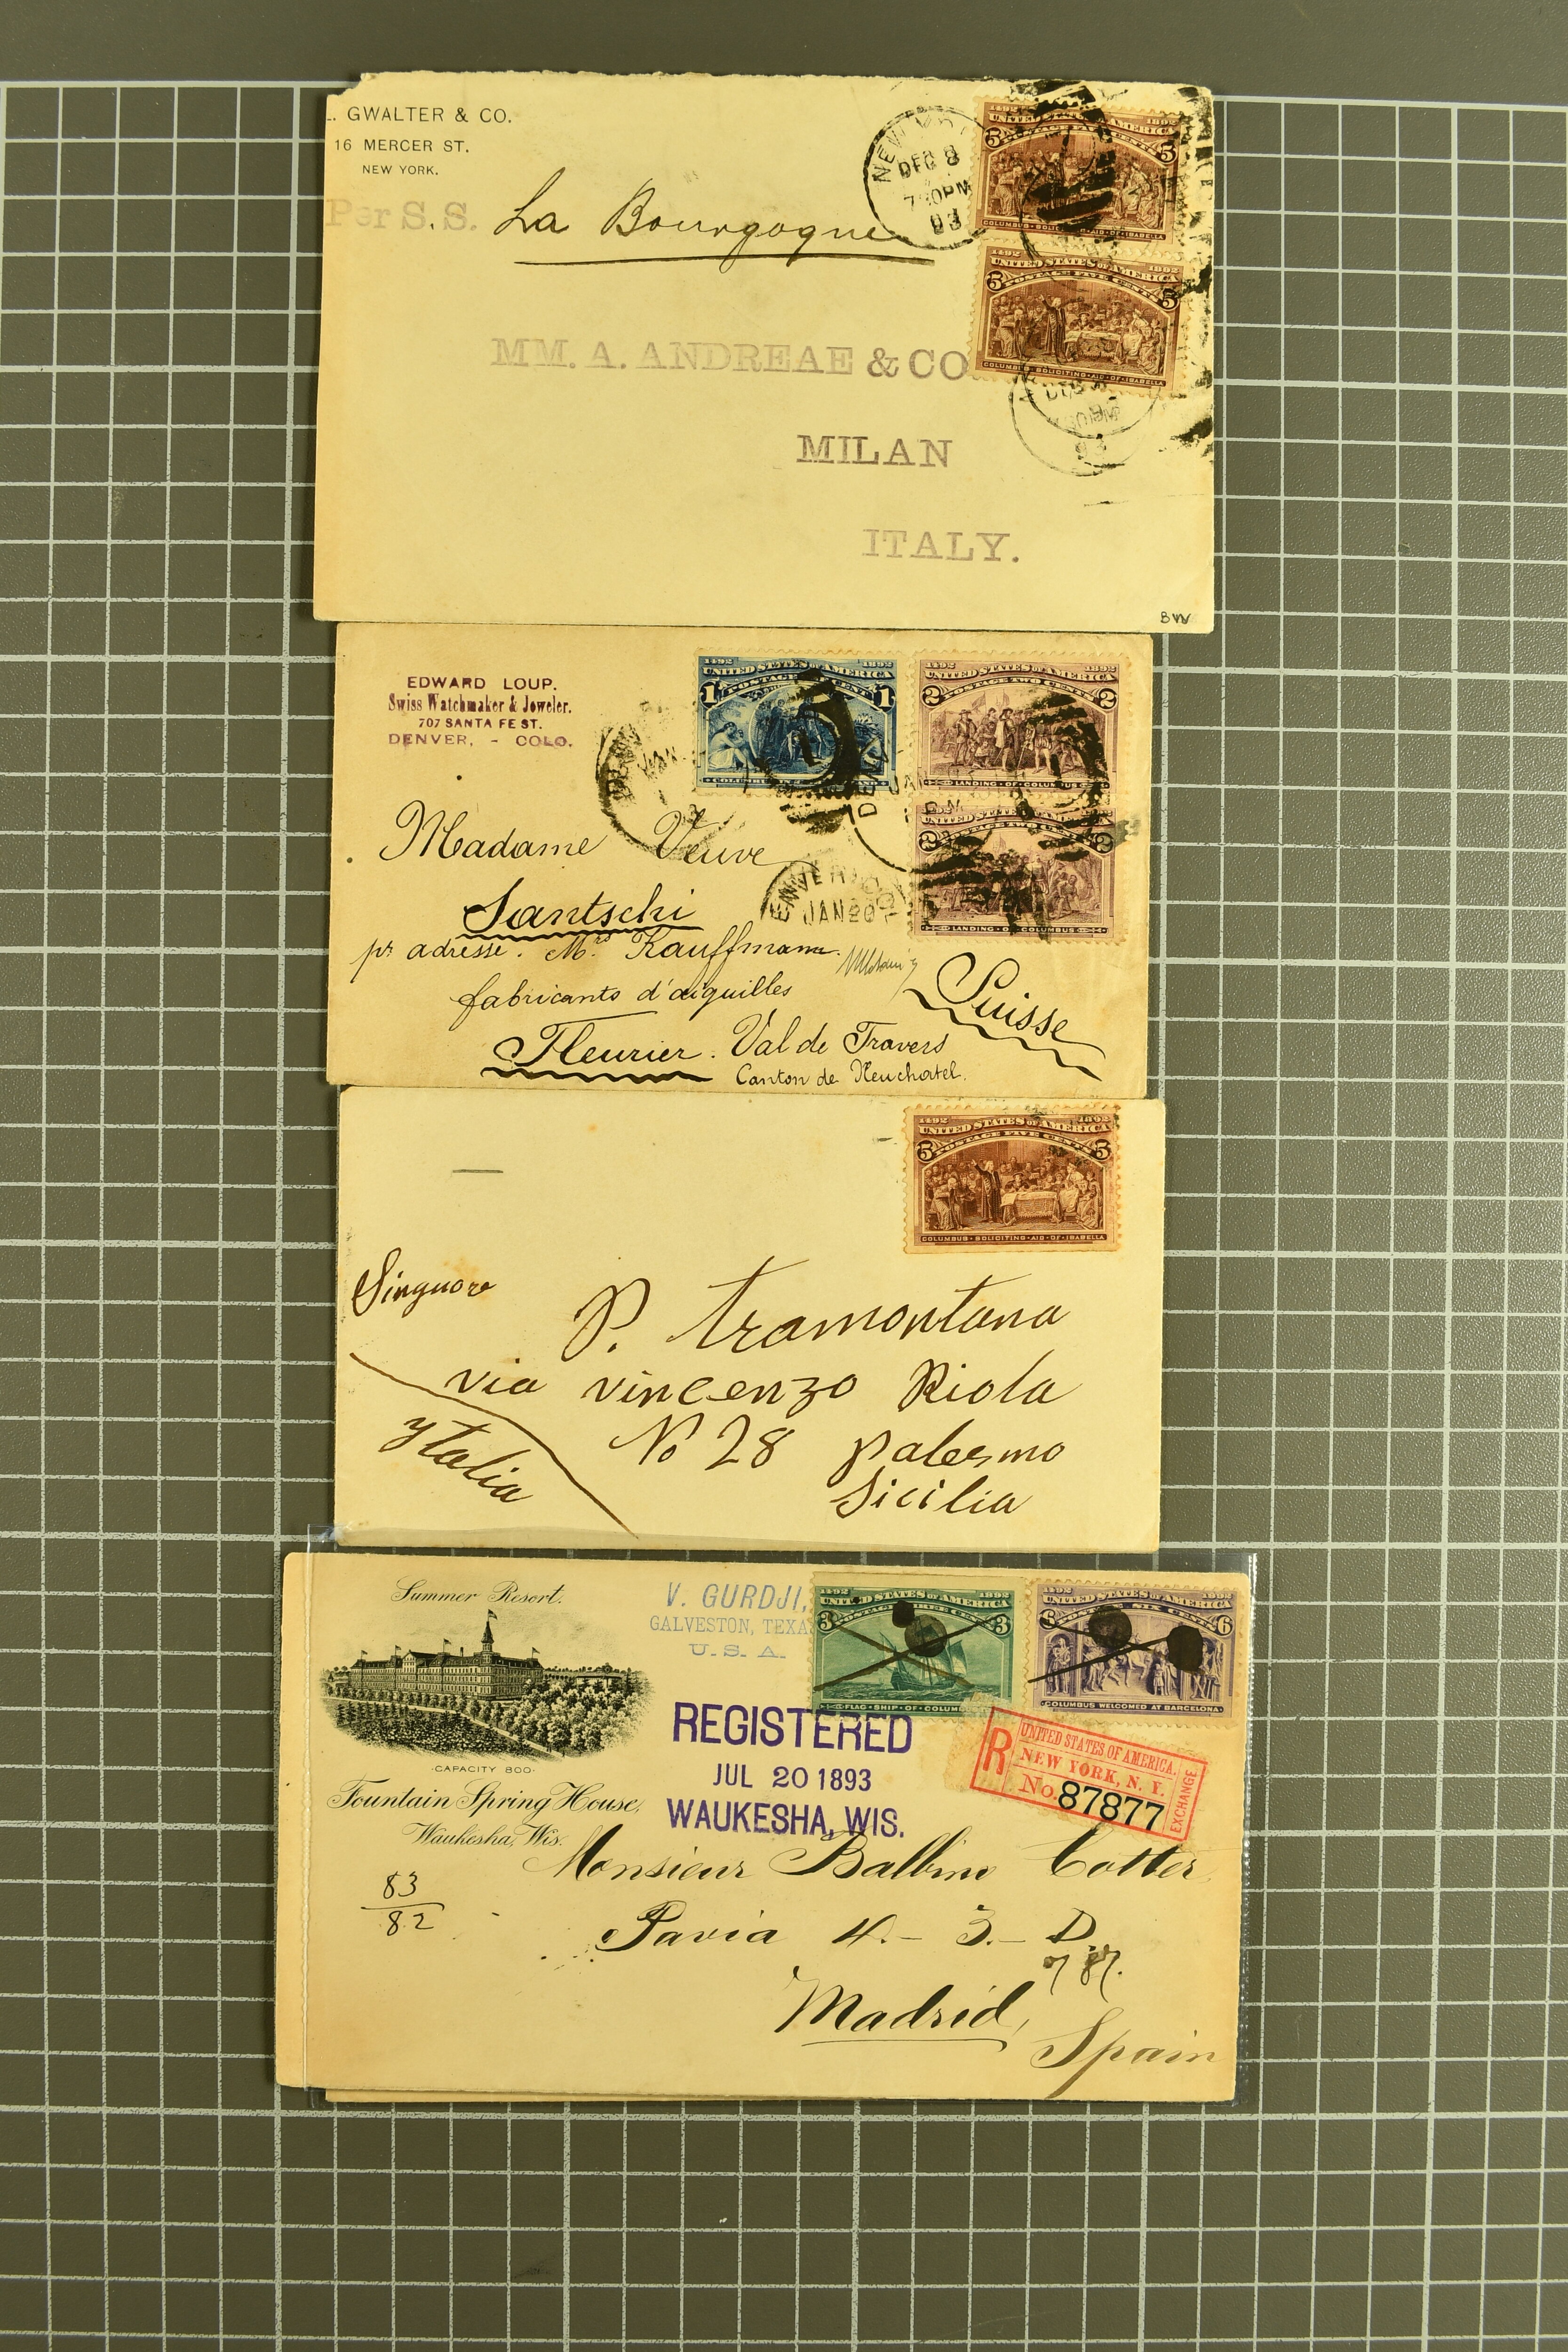 L. GWALTER & CO.
16 MERCER ST.
NEW YORK.
Per S.S. La Bourgogne
NEW YORK
DEC 8
7 30PM
93
1492 1892
UNITED STATES OF AMERICA
POSTAGE FIVE CENTS
5 5
COLUMBUS SOLICITING AID OF ISABELLA
1492 1892
UNITED STATES OF AMERICA
POSTAGE FIVE CENTS
5 5
COLUMBUS SOLICITING AID OF ISABELLA
MM. A. ANDREAE & CO
MILAN
ITALY.
BW
EDWARD LOUP.
Swiss Watchmaker & Joweler.
707 SANTA FE ST.
DENVER, - COLO.
1492 1892
UNITED STATES OF AMERICA
1 1
1492 1892
UNITED STATES OF AMERICA
POSTAGE TWO CENTS
2 2
LANDING OF COLUMBUS
UNITED STATES OF AMERICA
2 2
LANDING OF COLUMBUS
JAN 20
Madame Veuve
Santschi
pr adresse. Mrs Kauffmann.
fabricants d'aiguilles
Suisse
Fleurier. Val de Travers
Canton de Neuchatel.
1492 1892
UNITED STATES OF AMERICA
POSTAGE FIVE CENTS
5 5
COLUMBUS SOLICITING AID OF ISABELLA
Singuore
P. tramontana
via vincenzo Riola
No 28 palermo
Sicilia
ytalia
Summer Resort.
CAPACITY 800
Fountain Spring House,
Waukesha, Wis.
V. GURDJI,
GALVESTON, TEXA
U. S. A.
1492 1892
UNITED STATES OF AMERICA
3 3
FLAG SHIP OF COLUM
1492 1892
UNITED STATES OF AMERICA
6 6
COLUMBUS WELCOMED AT BARCELONA
REGISTERED
JUL 20 1893
WAUKESHA, WIS.
R
UNITED STATES OF AMERICA.
NEW YORK, N. Y.
No. 87877
EXCHANGE
Monsieur Balbino Cotter
83
82
Pavia 4.- 3.- D
787.
Madrid,
Spain